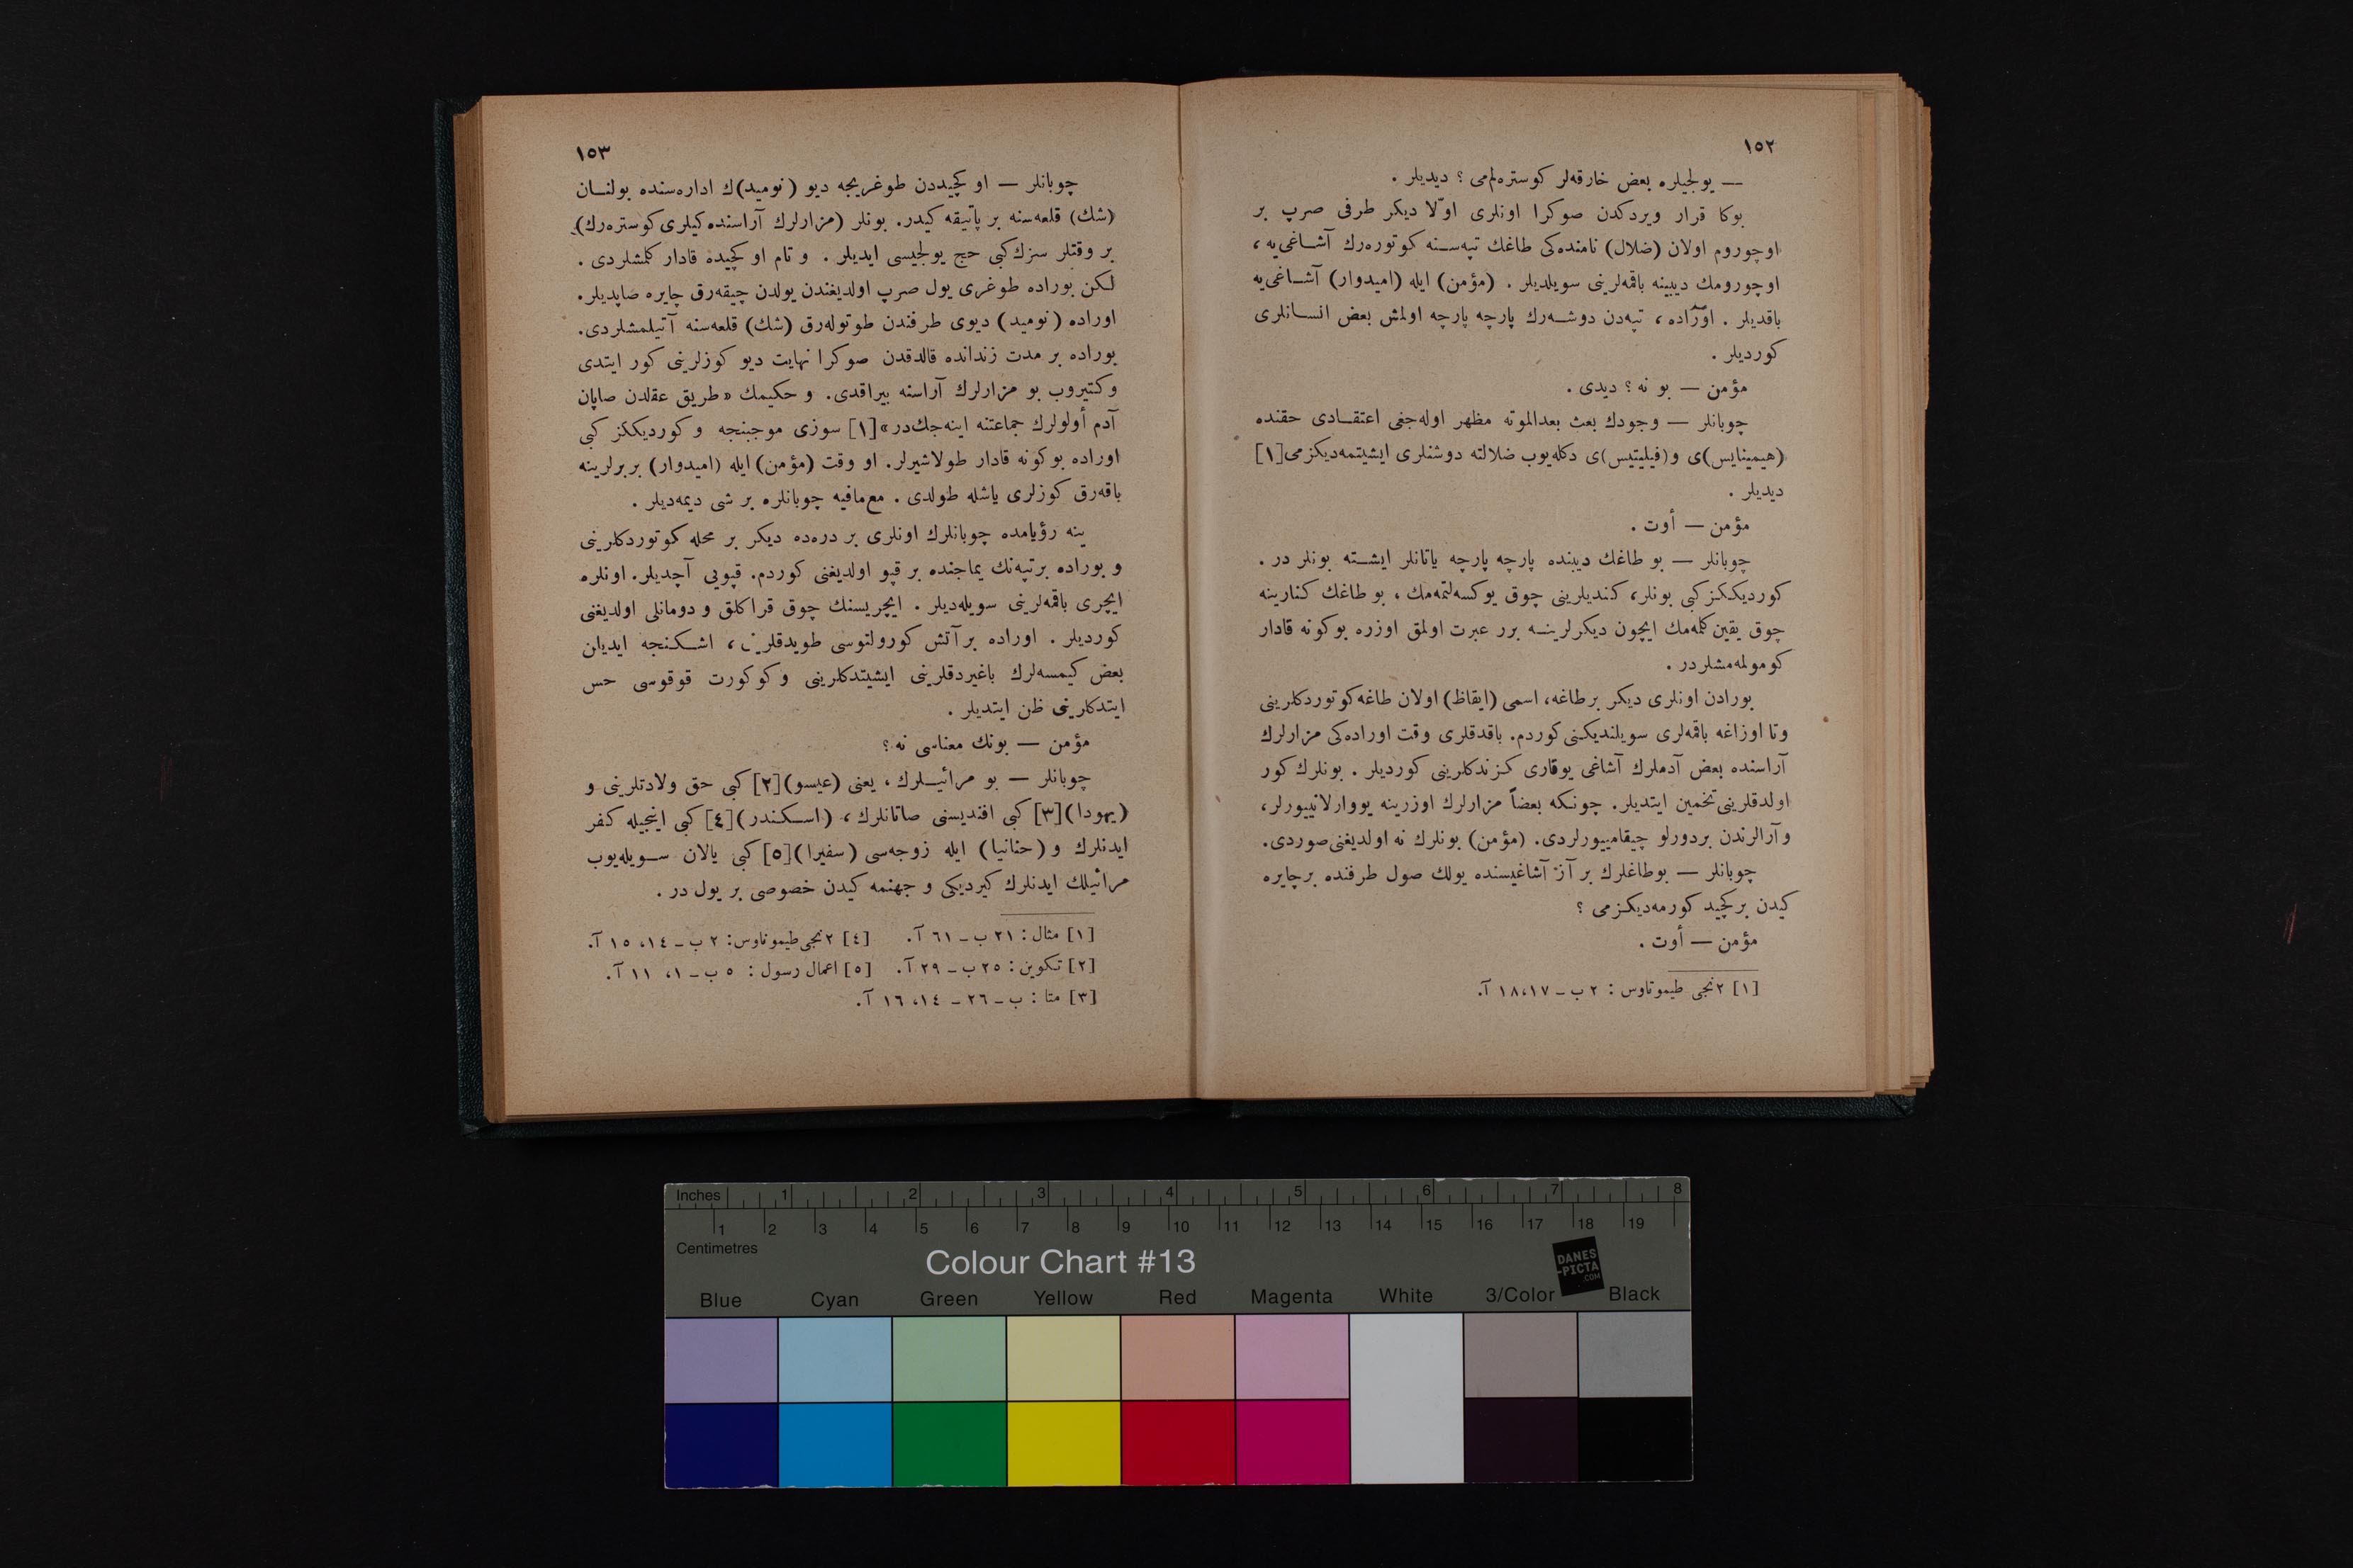 ١٥٢
— يولجيلره بعض خارقه‌لر كوستره‌لم‌می ؟ ديديلر .
بوكا قرار ويردكدن صوكرا اونلری اوّلا ديكر طرفی صرپ بر
اوچوروم اولان (ضلال) نامنده‌كی طاغك تپه‌سنه كوتوره‌رك آشاغی‌يه ،
اوچورومك ديبينه باقمه‌لرينی سويلديلر . (مؤمن) ايله (اميدوار) آشاغی‌يه
باقديلر . اوراده ، تپه‌دن دوشه‌رك پارچه پارچه اولمش بعض انسانلری
كورديلر .
مؤمن — بو نه ؟ ديدی .
چوبانلر — وجودك بعث بعدالموته مظهر اوله‌جغی اعتقادی حقنده
(هيمينايس)ی و(فيليتيس)ی دكله‌يوب ضلالته دوشنلری ايشيتمه‌ديكزمی[١]
ديديلر .
مؤمن — أوت .
چوبانلر — بو طاغك ديبنده پارچه پارچه ياتانلر ايشته بونلر در .
كورديككز كبی بونلر، كنديلرينی چوق يوكسه‌لتمه‌مك ، بو طاغك كنارينه
چوق يقين كلمه‌مك ايچون ديكرلرينه برر عبرت اولمق اوزره بوكونه قادار
كومولمه‌مشلردر .
بورادن اونلری ديكر برطاغه، اسمی (ايقاظ) اولان طاغه كوتوردكلرينی
وتا اوزاغه باقمه‌لری سويلنديكنی كوردم. باقدقلری وقت اوراده‌كی مزارلرك
آراسنده بعض آدملرك آشاغی يوقاری كزندكلرينی كورديلر . بونلرك كور
اولدقلرينی تخمين ايتديلر. چونكه بعضاً مزارلرك اوزرينه يووارلانييورلر،
وآرالرندن بردورلو چيقامييورلردی. (مؤمن) بونلرك نه اولديغنی صوردی.
چوبانلر — بوطاغلرك بر آز آشاغيسنده يولك صول طرفنده برچايره
كيدن بركچيد كورمه‌ديكزمی ؟
مؤمن — أوت .
[١] ٢نجی طيموتاوس : ٢ ب – ١٨،١٧ آ.
١٥٣
چوبانلر — او كچيددن طوغريجه ديو (نوميد)ك اداره‌سنده بولنان
(شك) قلعه‌سنه بر پاتيقه كيدر. بونلر (مزارلرك آراسنده‌كيلری كوستره‌رك)
بر وقتلر سزك كبی حج يولجيسی ايديلر . و تام او كچيده قادار كلمشلردی .
لكن بوراده طوغری يول صرپ اولديغندن يولدن چيقه‌رق چايره صاپديلر.
اوراده (نوميد) ديوی طرفندن طوتوله‌رق (شك) قلعه‌سنه آتيلمشلردی.
بوراده بر مدت زندانده قالدقدن صوكرا نهايت ديو كوزلرينی كور ايتدی
وكتيروب بو مزارلرك آراسنه بيراقدی. و حكيمك «طريق عقلدن صاپان
آدم أولولرك جماعتنه اينه‌جك‌در»[١] سوزی موجبنجه و كورديككز كبی
اوراده بوكونه قادار طولاشيرلر. او وقت (مؤمن) ايله (اميدوار) بربرلرينه
باقه‌رق كوزلری ياشله طولدی . مع‌مافيه چوبانلره بر شی ديمه‌ديلر .
ينه رؤيامده چوبانلرك اونلری بر دره‌ده ديكر بر محله كوتوردكلرينی
و بوراده برتپه‌نك يماجنده بر قپو اولديغنی كوردم. قپويی آچديلر. اونلره
ايچری باقمه‌لرينی سويله‌ديلر . ايچريسنك چوق قراكلق و دومانلی اولديغنی
كورديلر . اوراده بر آتش كورولتوسی طويدقلرينی ، اشكنجه ايديان
بعض كيمسه‌لرك باغيردقلرينی ايشيتدكلرينی و كوكورت قوقوسی حس
ايتدكلرينی ظن ايتديلر .
مؤمن — بونك معناسی نه ؟
چوبانلر — بو مرائيلرك ، يعنی (عيسو)[٢] كبی حق ولادتلرينی و
(يهودا)[٣] كبی افنديسنی صاتانلرك ، (اسكندر)[٤] كبی اينجيله كفر
ايدنلرك و (حنانيا) ايله زوجه‌سی (سفيرا)[٥] كبی يالان سويله‌يوب
مرائيلك ايدنلرك كيرديكی و جهنمه كيدن خصوصی بر يول در .
[١] مثال : ٢١ ب – ٦١ آ. [٤] ٢نجی طيموتاوس: ٢ ب – ١٤، ١٥ آ.
[٢] تكوين : ٢٥ ب – ٢٩ آ. [٥] اعمال رسول : ٥ ب – ١، ١١ آ.
[٣] متا : ب – ٢٦ – ١٤، ١٦ آ.
Inches 1 2 3 4 5 6 7 8
1 2 3 4 5 6 7 8 9 10 11 12 13 14 15 16 17 18 19
Centimetres
Colour Chart #13
DANES
-PICTA
.COM
Blue Cyan Green Yellow Red Magenta White 3/Color Black